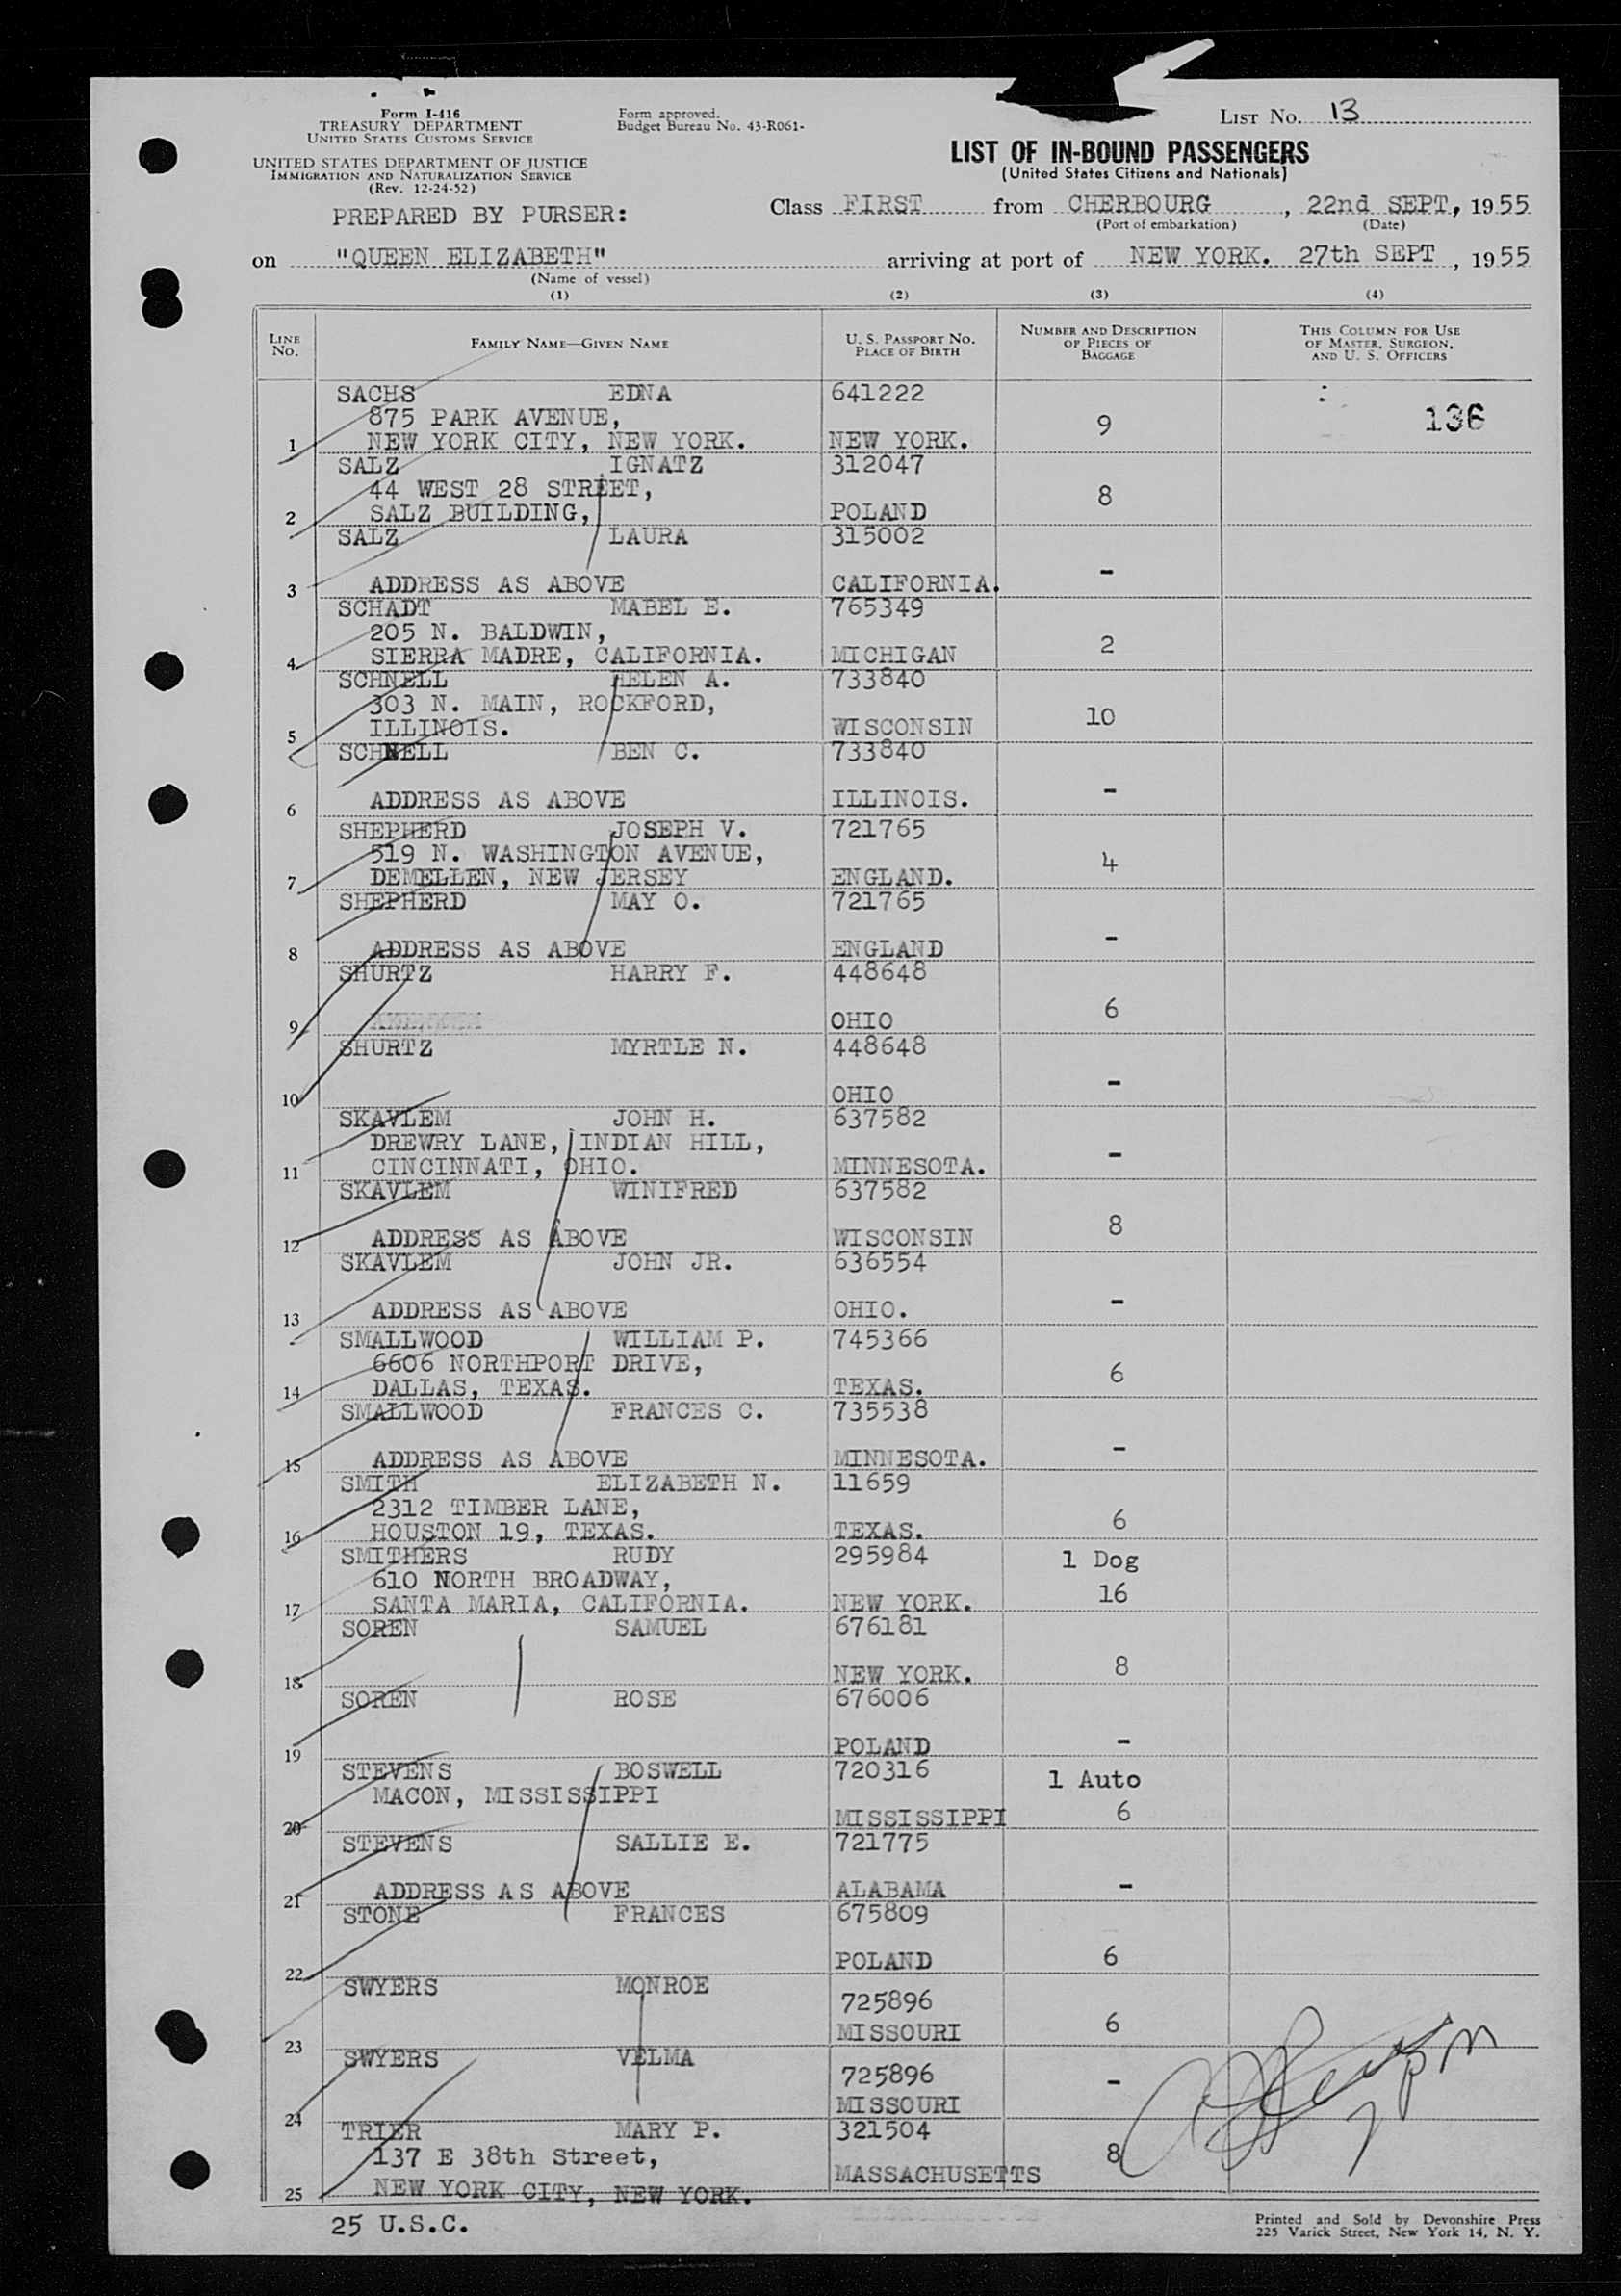 Form I-416
TREASURY DEPARTMENT
UNITED STATES CUSTOMS SERVICE
UNITED STATES DEPARTMENT OF JUSTICE
IMMIGRATION AND NATURALIZATION SERVICE
(Rev. 12-24-52)
Form approved.
Budget Bureau No. 43-R061-
LIST No. 13
LIST OF IN-BOUND PASSENGERS
(United States Citizens and Nationals)
PREPARED BY PURSER:
Class FIRST from CHERBOURG, 22nd SEPT, 1955
(Port of embarkation) (Date)
on "QUEEN ELIZABETH" arriving at port of NEW YORK. 27th SEPT, 1955
(Name of vessel)
(1) (2) (3) (4)
LINE No. FAMILY NAME—GIVEN NAME U. S. PASSPORT NO. PLACE OF BIRTH NUMBER AND DESCRIPTION OF PIECES OF BAGGAGE THIS COLUMN FOR USE OF MASTER, SURGEON, AND U. S. OFFICERS
SACHS EDNA 641222
875 PARK AVENUE, 9 136
1 NEW YORK CITY, NEW YORK. NEW YORK.
SALZ IGNATZ 312047
44 WEST 28 STREET, 8
2 SALZ BUILDING, POLAND
SALZ LAURA 315002
-
3 ADDRESS AS ABOVE CALIFORNIA.
SCHADT MABEL E. 765349
205 N. BALDWIN, 2
4 SIERRA MADRE, CALIFORNIA. MICHIGAN
SCHNELL HELEN A. 733840
303 N. MAIN, ROCKFORD, 10
5 ILLINOIS. WISCONSIN
SCHNELL BEN C. 733840
-
6 ADDRESS AS ABOVE ILLINOIS.
SHEPHERD JOSEPH V. 721765
519 N. WASHINGTON AVENUE, 4
7 DEMELLEN, NEW JERSEY ENGLAND.
SHEPHERD MAY O. 721765
-
8 ADDRESS AS ABOVE ENGLAND
SHURTZ HARRY F. 448648
6
9 OHIO
SHURTZ MYRTLE N. 448648
-
10 OHIO
SKAVLEM JOHN H. 637582
DREWRY LANE, INDIAN HILL, -
11 CINCINNATI, OHIO. MINNESOTA.
SKAVLEM WINIFRED 637582
8
12 ADDRESS AS ABOVE WISCONSIN
SKAVLEM JOHN JR. 636554
-
13 ADDRESS AS ABOVE OHIO.
SMALLWOOD WILLIAM P. 745366
6606 NORTHPORT DRIVE, 6
14 DALLAS, TEXAS. TEXAS.
SMALLWOOD FRANCES C. 735538
-
15 ADDRESS AS ABOVE MINNESOTA.
SMITH ELIZABETH N. 11659
2312 TIMBER LANE, 6
16 HOUSTON 19, TEXAS. TEXAS.
SMITHERS RUDY 295984 1 Dog
610 NORTH BROADWAY, 16
17 SANTA MARIA, CALIFORNIA. NEW YORK.
SOREN SAMUEL 676181
8
18 NEW YORK.
SOREN ROSE 676006
-
19 POLAND
STEVENS BOSWELL 720316 1 Auto
MACON, MISSISSIPPI
20 MISSISSIPPI 6
STEVENS SALLIE E. 721775
21 ADDRESS AS ABOVE ALABAMA -
STONE FRANCES 675809
22 POLAND 6
SWYERS MONROE
725896
23 MISSOURI 6
SWYERS VELMA
725896 -
24 MISSOURI
TRIER MARY P. 321504
137 E 38th Street, 8
MASSACHUSETTS
25 NEW YORK CITY, NEW YORK.
25 U.S.C.
Printed and Sold by Devonshire Press
225 Varick Street, New York 14, N. Y.